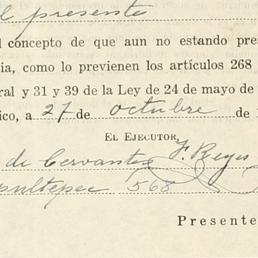 el presente
l concepto de que aun no estando pres
ia, como lo previenen los artículos 268
ral y 31 y 39 de la Ley de 24 de mayo de
ico, a 27 de octubre de
EL EJECUTOR,
de Cervantes F. Reyes
pultepec 568
Presente